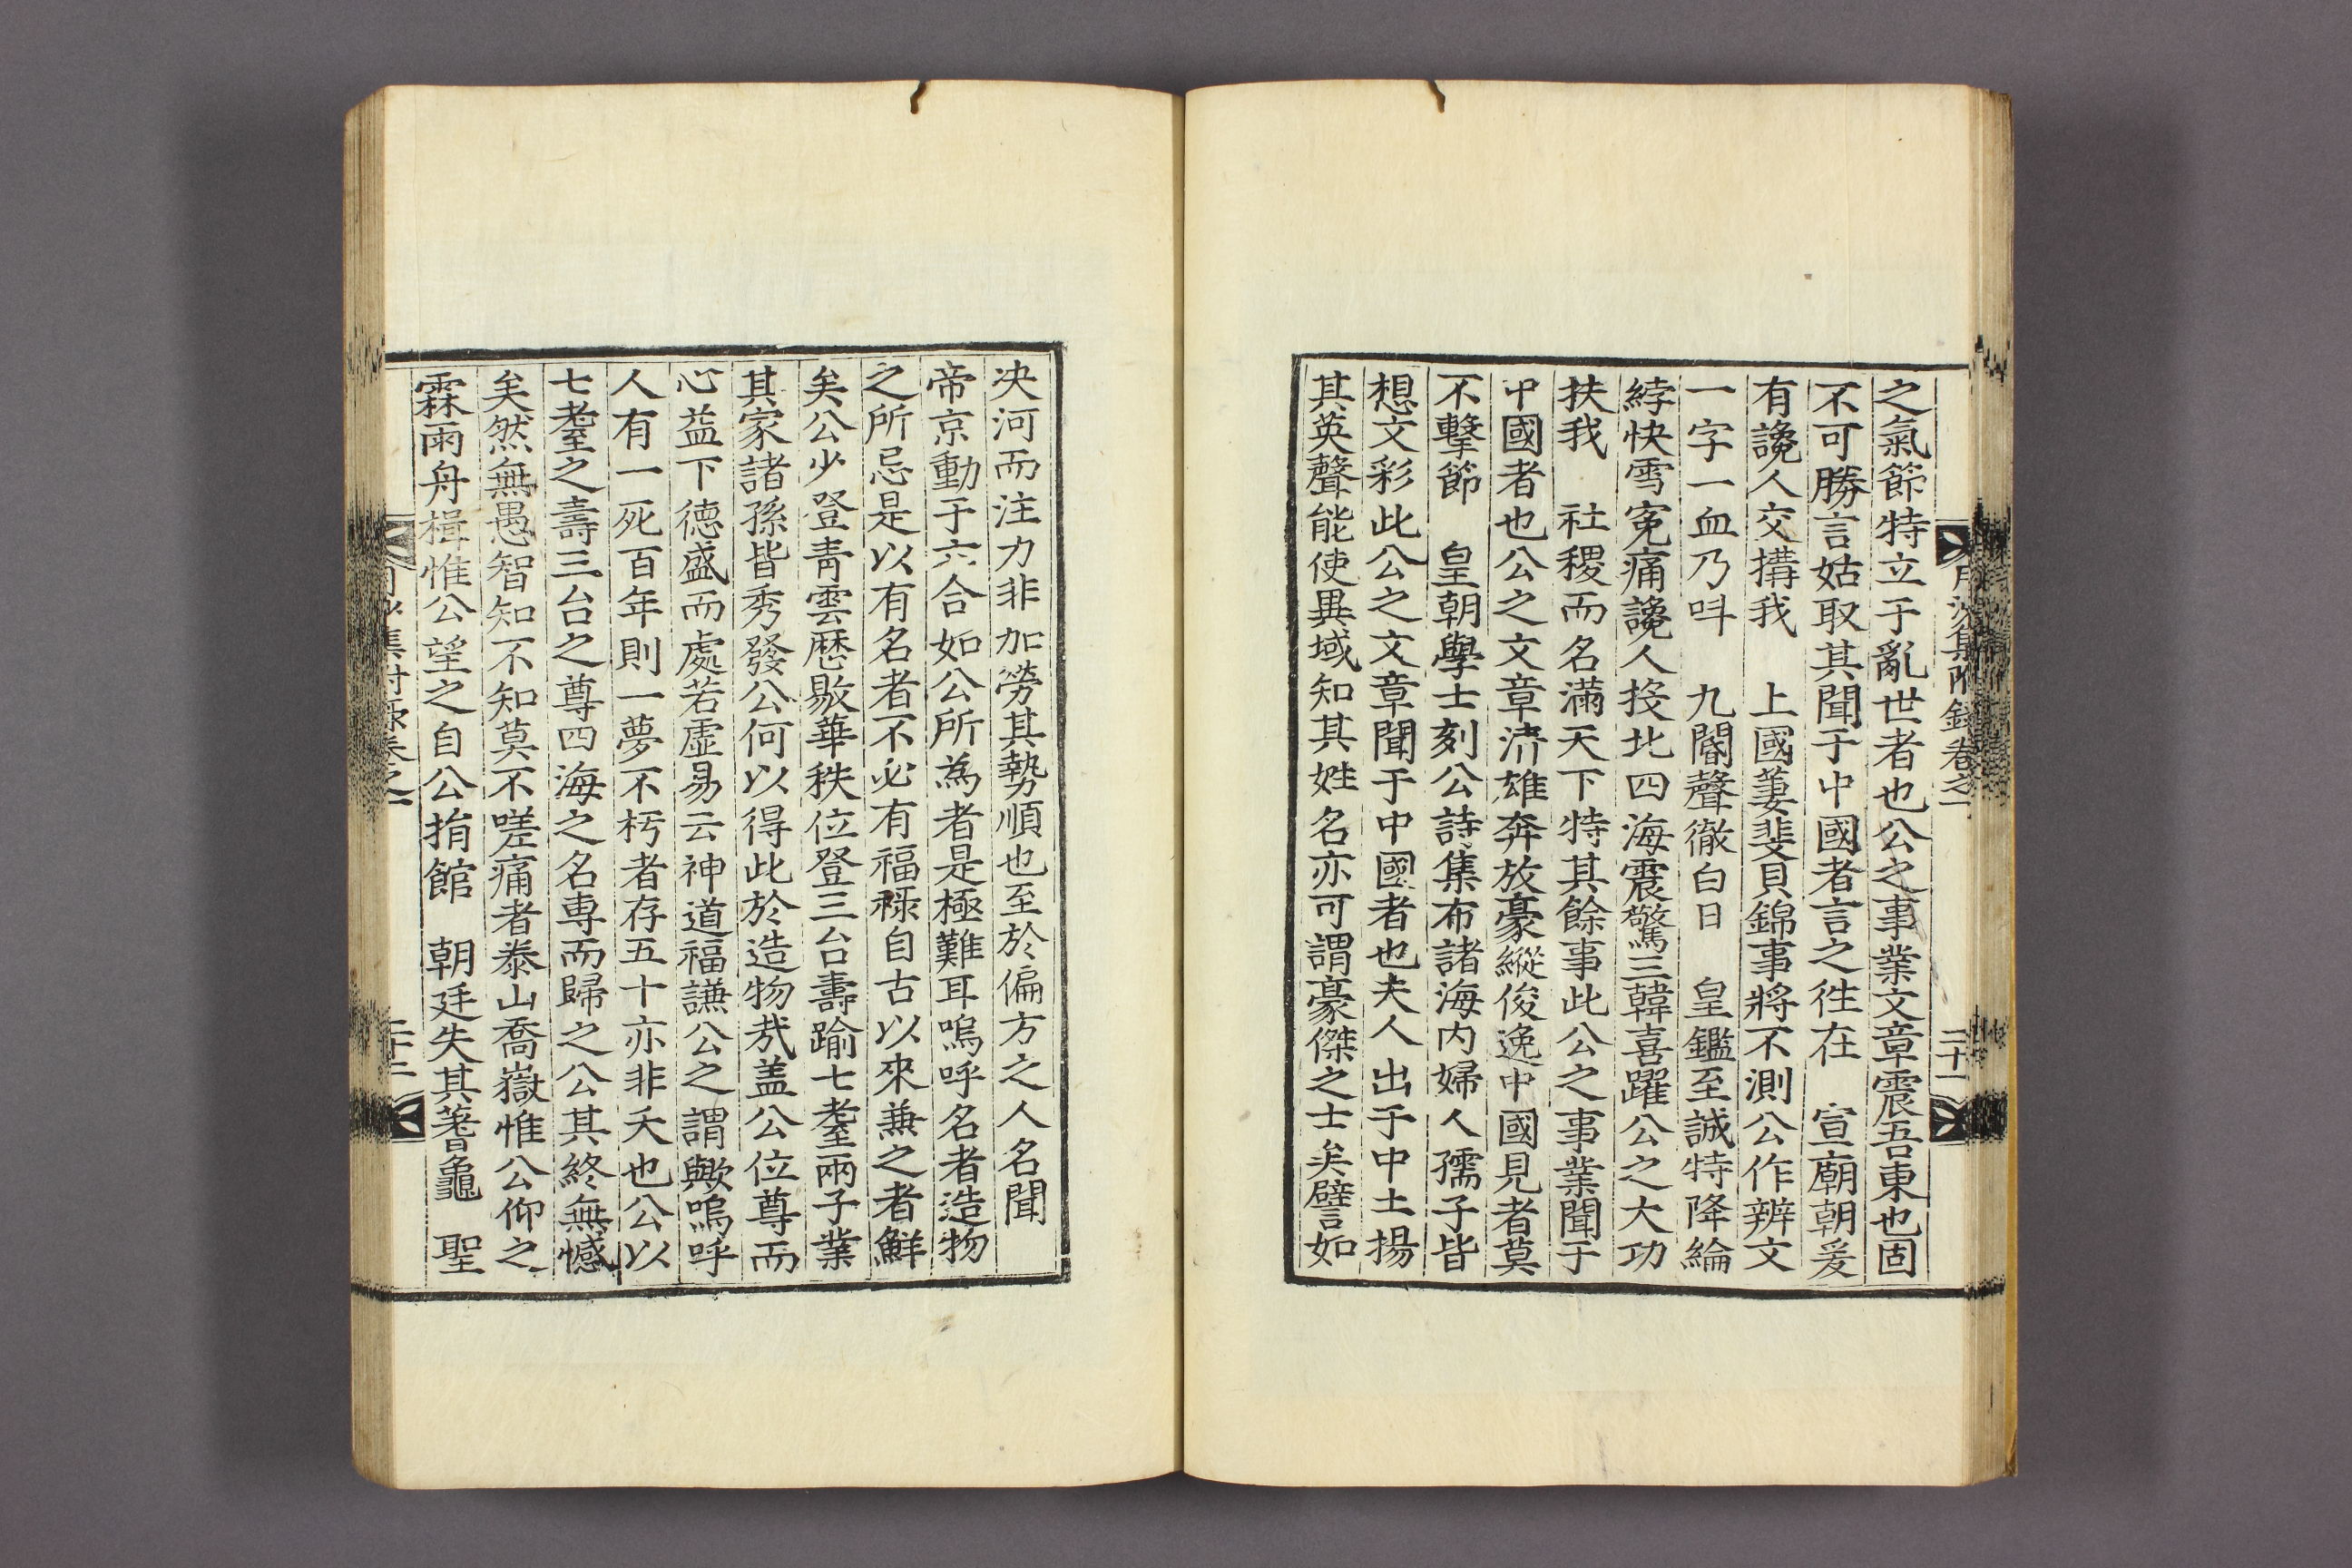 月沙集附錄卷之一 二十一
之氣節特立于亂世者也公之事業文章震吾東也固
不可勝言姑取其聞于中國者言之徃在 宣廟朝爰
有讒人交搆我 上國萋斐貝錦事將不測公作辨文
一字一血乃呌 九閽聲徹白日 皇鑑至誠特降綸
綍快雪寃痛讒人投北四海震驚三韓喜躍公之大功
扶我 社稷而名滿天下特其餘事此公之事業聞于
中國者也公之文章濟雄奔放豪縱俊逸中國見者莫
不擊節 皇朝學士刻公詩集布諸海內婦人孺子皆
想文彩此公之文章聞于中國者也夫人出于中土揚
其英聲能使異域知其姓名亦可謂豪傑之士矣譬如
决河而注力非加勞其勢順也至於偏方之人名聞
帝京動于六合如公所為者是極難耳嗚呼名者造物
之所忌是以有名者不必有福祿自古以來兼之者鮮
矣公少登靑雲歷敭華秩位登三台壽踰七耋兩子業
其家諸孫皆秀發公何以得此於造物㢤盖公位尊而
心益下德盛而處若虛易云神道福謙公之謂歟嗚呼
人有一死百年則一夢不朽者存五十亦非夭也公以
七耋之壽三台之尊四海之名專而歸之公其終無憾
矣然無愚智知不知莫不嗟痛者泰山喬嶽惟公仰之
霖雨舟楫惟公望之自公捐館 朝廷失其蓍龜 聖
月沙集附錄卷之一 二十二